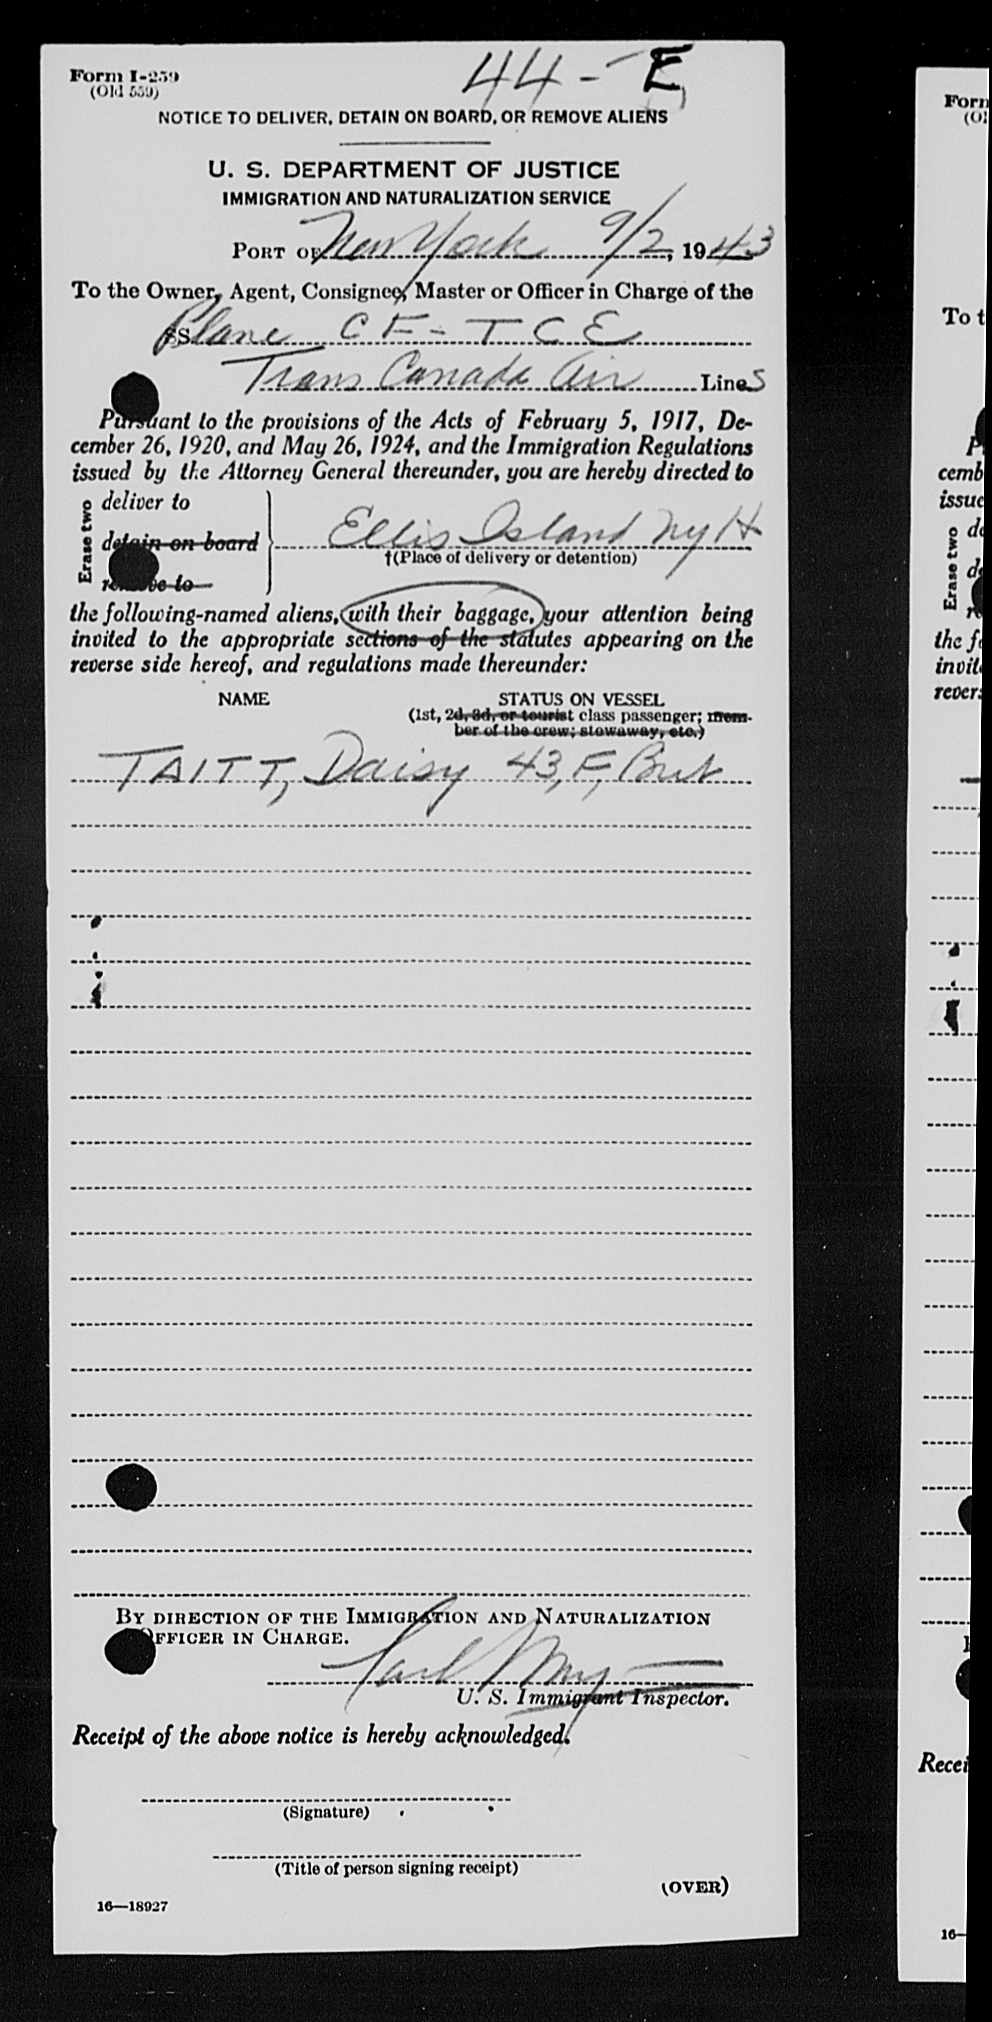 Form I-259
(Old 559)
44-E
NOTICE TO DELIVER, DETAIN ON BOARD, OR REMOVE ALIENS
U. S. DEPARTMENT OF JUSTICE
IMMIGRATION AND NATURALIZATION SERVICE
PORT OF New York 9/2, 1943
To the Owner, Agent, Consignee, Master or Officer in Charge of the
SS Plane CF-TCE
Trans Canada Air Lines
Pursuant to the provisions of the Acts of February 5, 1917, De-
cember 26, 1920, and May 26, 1924, and the Immigration Regulations
issued by the Attorney General thereunder, you are hereby directed to
Erase two
deliver to
detain on board
remove to
Ellis Island NyH
†(Place of delivery or detention)
the following-named aliens, with their baggage, your attention being
invited to the appropriate sections of the statutes appearing on the
reverse side hereof, and regulations made thereunder:
NAME STATUS ON VESSEL
(1st, 2d, 3d, or tourist class passenger; mem-
ber of the crew; stowaway, etc.)
TAITT, Daisy 43, F, Brit
BY DIRECTION OF THE IMMIGRATION AND NATURALIZATION
OFFICER IN CHARGE.
U. S. Immigrant Inspector.
Receipt of the above notice is hereby acknowledged.
(Signature)
(Title of person signing receipt)
(OVER)
16—18927
Form
To t
cemb
issue
Erase two
the f
invit
rever
Recei
16—